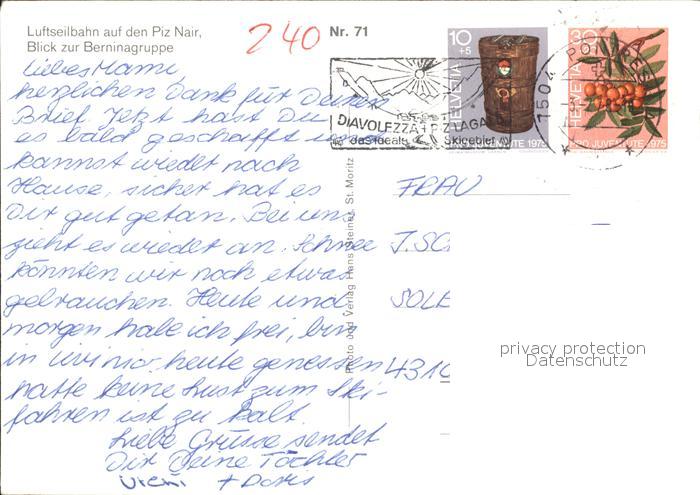 Luftseilbahn auf den Piz Nair,
Blick zur Berninagruppe
240
Nr. 71
Liebes Mami,
herzlichen Dank für Deinen
Brief. Jetzt hast Du
es bald geschafft und
kannst wieder nach
Hause, sicher hat es
Dir gut getan. Bei uns
zieht es wieder an. Schnee
könnten wir noch etwas
gebrauchen. Heute und
morgen habe ich frei, bin
in heute genossen
hatte keine Lust zum Ski-
fahren ist zu kalt.
Liebe Grüsse sendet
Dir Deine Töchter
Vreni + Doris
Photo und Verlag Hans Steiner, St. Moritz
DIAVOLEZZA + PIZ LAGALB
das ideale Skigebiet
10
+5
HELVETIA
30
HELVETIA
PRO JUVENTUTE 1975
7504 PONTRESINA
FRAU
J. SC
SOLE
4310
privacy protection
Datenschutz